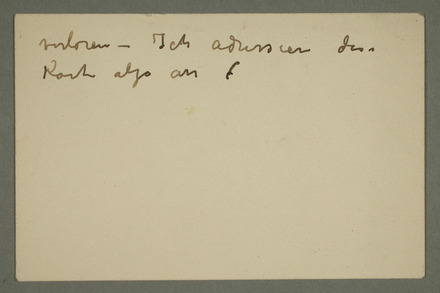 verloren – Ich adressiere die
Karte also an